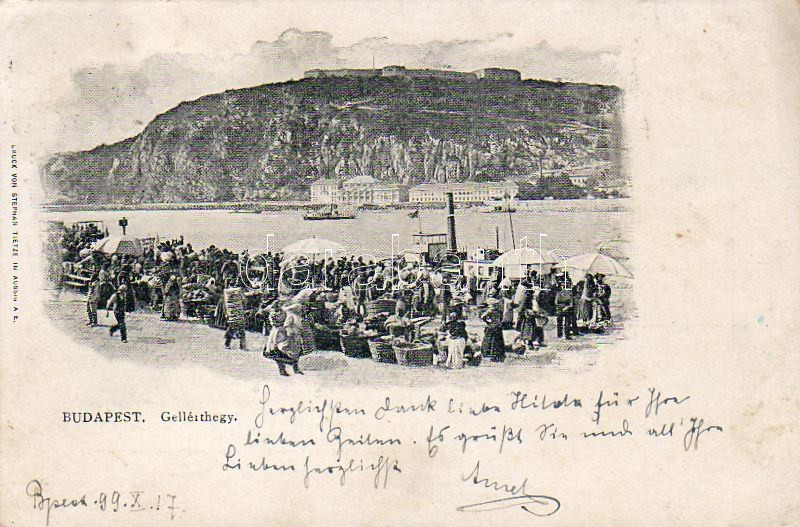 DRUCK VON STEPHAN TIETZE IN AUSSIG A.E.
darabanth
BUDAPEST. Gellérthegy.
Herzlichsten Dank liebe Hilda für Ihre
lieben Zeilen. Es grüßt Sie und all' Ihre
Lieben herzlichst
Bpest. 99. X. 17.